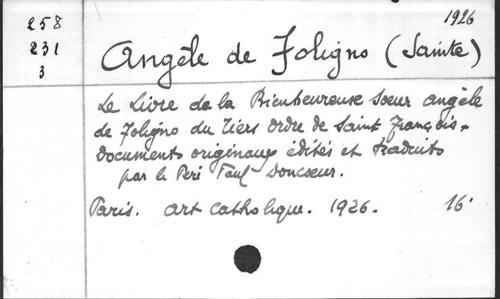 1926
258
231
3
Angèle de Foligno (Sainte)
Le Livre de la Bienheureuse Soeur Angèle
de Foligno du Tiers Ordre de Saint François.
Documents originaux édités et traduits
par le Père Paul Doncoeur.
Paris. Art Catholique. 1926. 16°